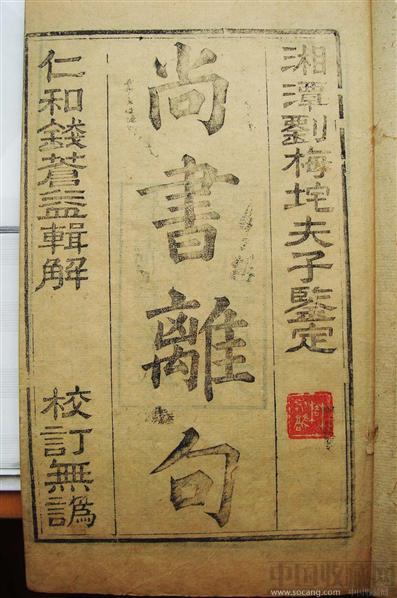 湘潭劉梅垞夫子鑒定
尚書離句
仁和錢蒼益輯解
校訂無譌
中国收藏网
www.socang.com 中国收藏网